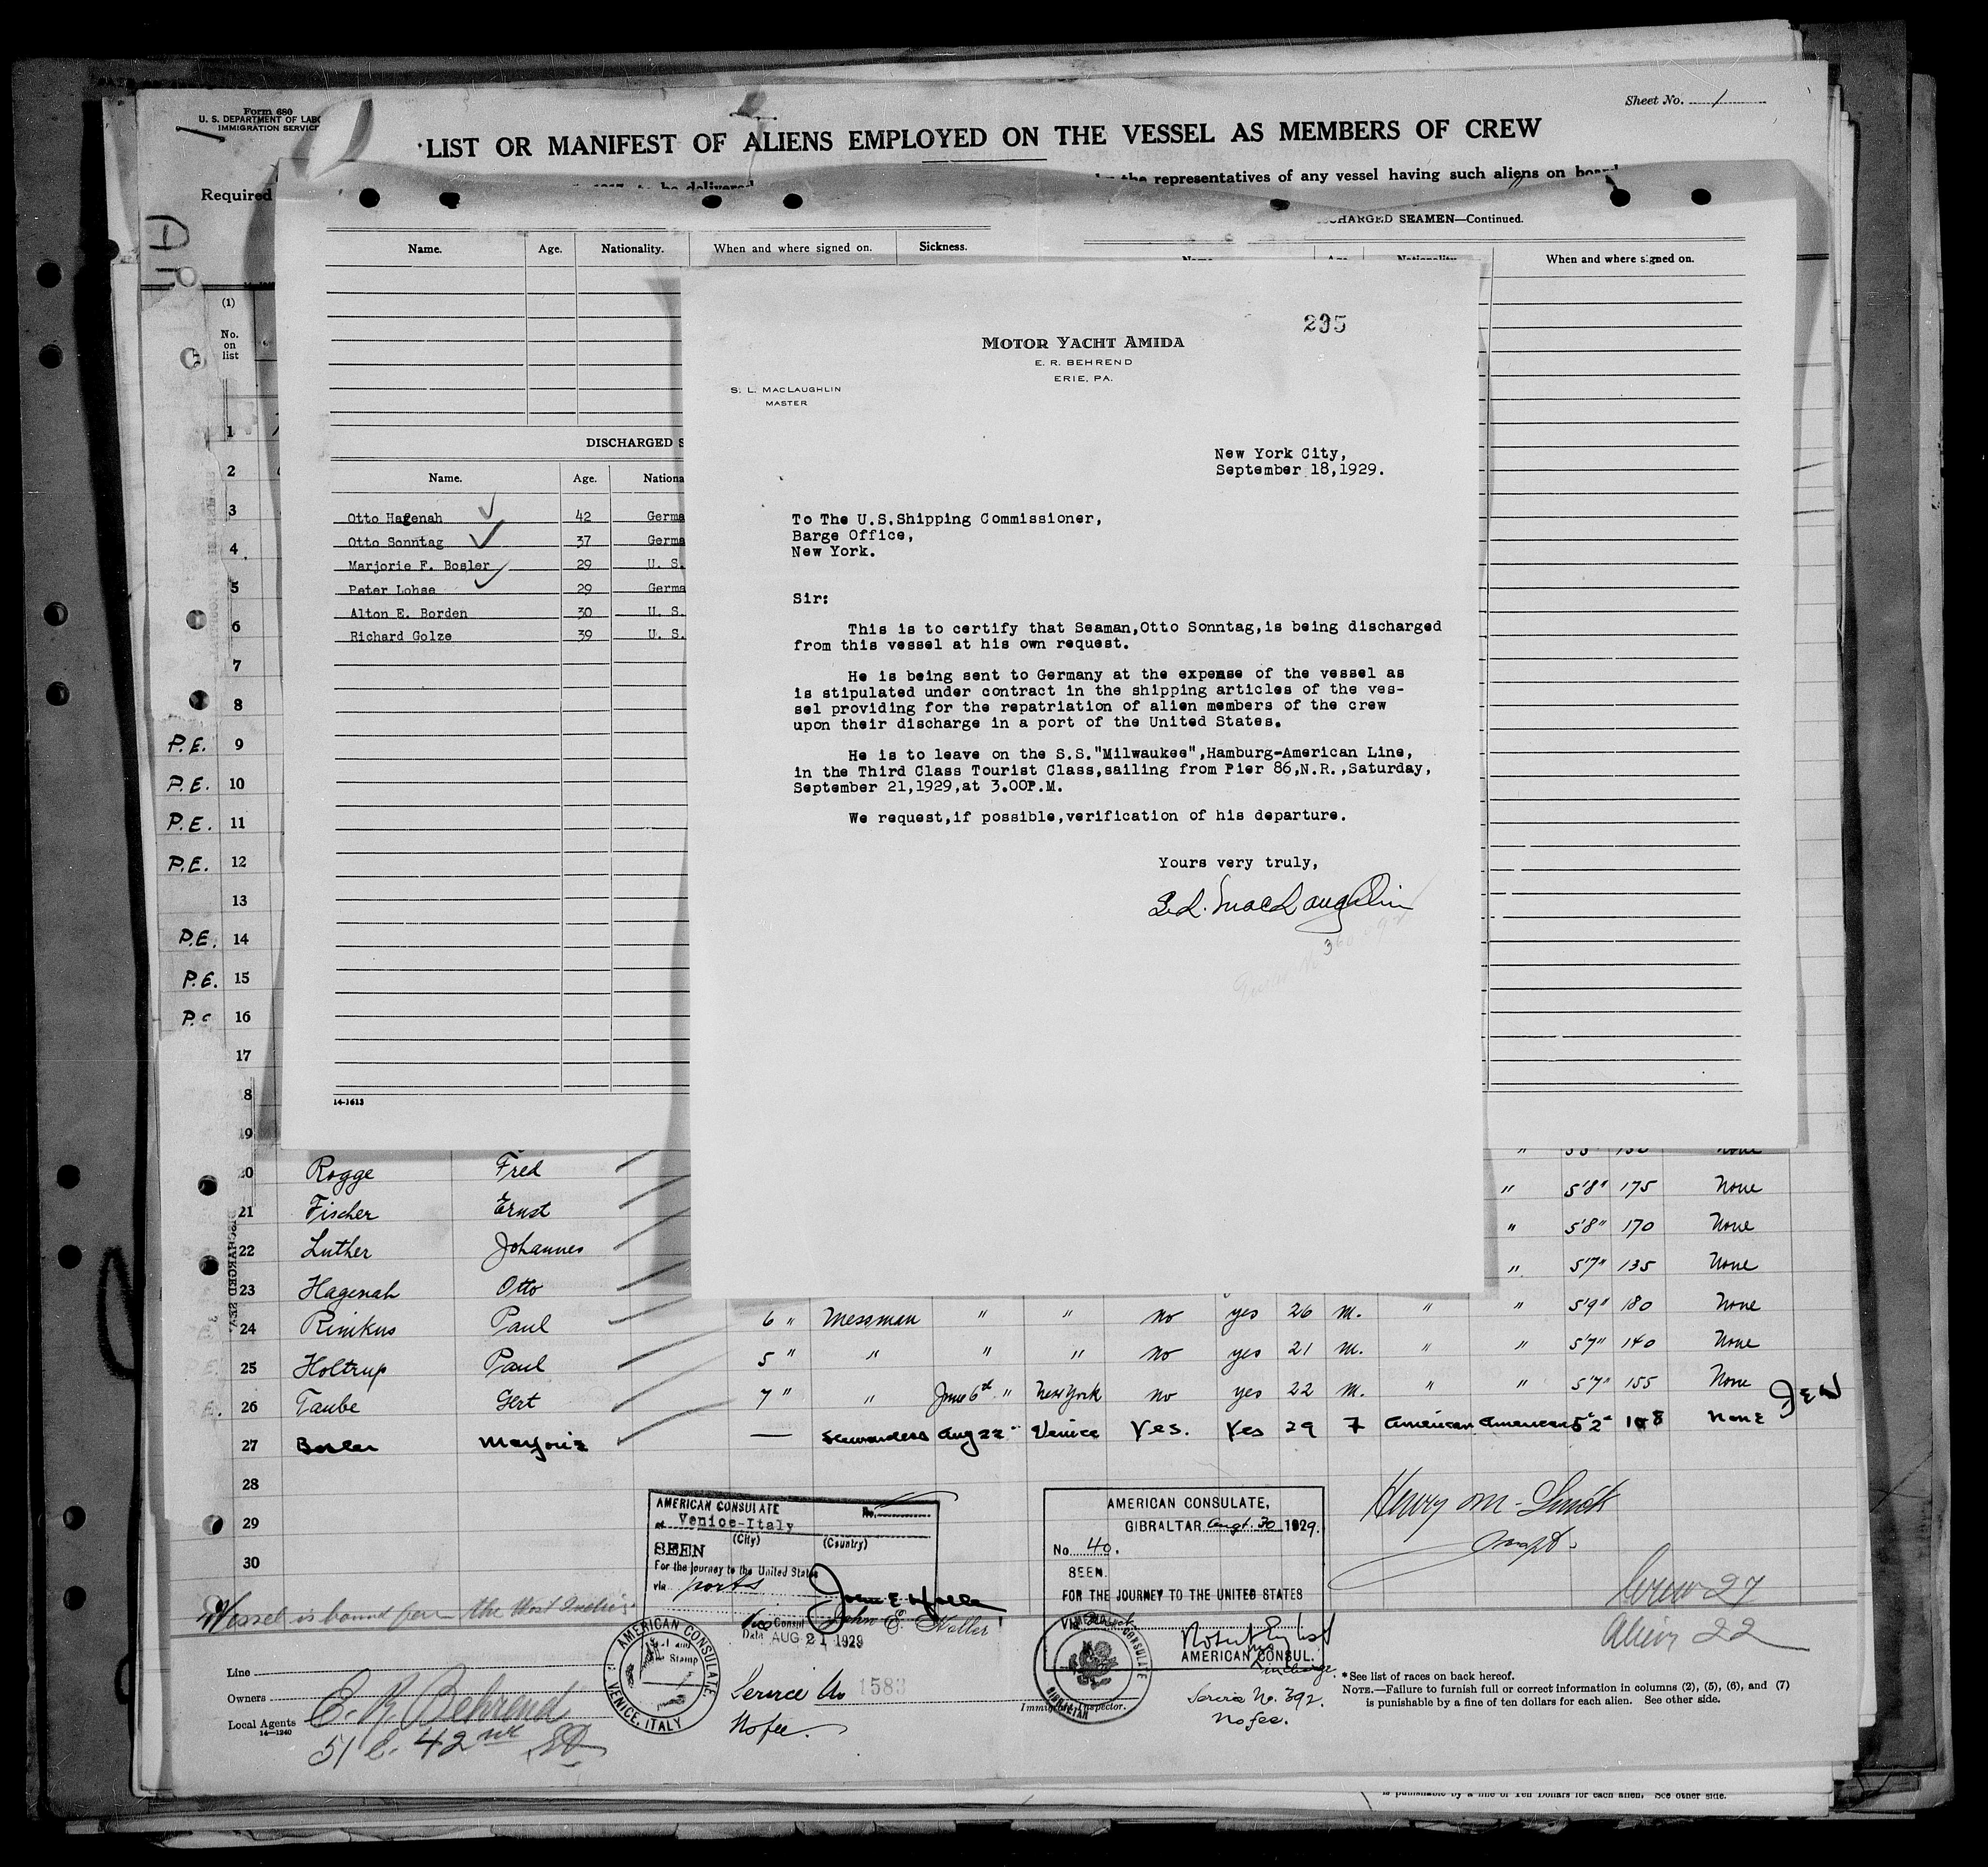 Form 680
U. S. DEPARTMENT OF LABO
IMMIGRATION SERVICE
Sheet No. 1
LIST OR MANIFEST OF ALIENS EMPLOYED ON THE VESSEL AS MEMBERS OF CREW
Required
to be delivered
the representatives of any vessel having such aliens on board
CHARGED SEAMEN—Continued.
Name. Age. Nationality. When and where signed on. Sickness.
When and where signed on.
DISCHARGED S
Name. Age. Nationa
Otto Hagenah 42 Germa
Otto Sonntag 37 Germa
Marjorie F. Bosler 29 U. S.
Peter Lohse 29 Germa
Alton E. Borden 30 U. S.
Richard Golze 39 U. S.
14-1613
295
MOTOR YACHT AMIDA
E. R. BEHREND
ERIE, PA.
S. L. MACLAUGHLIN
MASTER
New York City,
September 18,1929.
To The U.S.Shipping Commissioner,
Barge Office,
New York.
Sir:
This is to certify that Seaman,Otto Sonntag,is being discharged
from this vessel at his own request.
He is being sent to Germany at the expense of the vessel as
is stipulated under contract in the shipping articles of the ves-
sel providing for the repatriation of alien members of the crew
upon their discharge in a port of the United States.
He is to leave on the S.S."Milwaukee",Hamburg-American Line,
in the Third Class Tourist Class,sailing from Pier 86,N.R.,Saturday,
September 21,1929,at 3.00P.M.
We request,if possible,verification of his departure.
Yours very truly,
S.L. MacLaughlin
(1)
No.
on
list
1
2
3
4
5
6
7
8
P.E. 9
P.E. 10
P.E. 11
P.E. 12
13
P.E. 14
P.E. 15
16
17
Rogge Fred
" 5'8" 175 None
21 Fischer Ernst
" 5'8" 170 None
22 Luther Johannes
" 5'7" 135 None
23 Hagenah Otto
" 5'9" 180 None
24 Rinikus Paul 6 " Messman " " no yes 26 m. "
25 Holtrup Paul 5 " " " " no yes 21 m. " " 5'7" 140 None
26 Taube Gert 7 " " June 6th " New York no yes 22 m. " " 5'7" 155 None
27 Bosler Marjorie — Stewardess Aug 22 " Venice Yes. Yes 29 F American American 5'2" None
28
29
30
AMERICAN CONSULATE
at Venice-Italy
(City) (Country)
No.
SEEN
For the journey to the United States
via ports
John E. Holler
Vice Consul
Date AUG 21 1929
AMERICAN CONSULATE. VENICE, ITALY
Service No 1583
No fee.
AMERICAN CONSULATE,
GIBRALTAR Augt. 30 1929.
No. 40.
SEEN.
FOR THE JOURNEY TO THE UNITED STATES
VIA
AMERICAN CONSUL.
Service No. 392.
No fee.
Crew 27
Alien 22
Vessel is bound for the West Indies
Line
Owners
Local Agents
14—1240
E. R. Behrend
51 E. 42nd St
Immigrant Inspector.
*See list of races on back hereof.
NOTE.—Failure to furnish full or correct information in columns (2), (5), (6), and (7)
is punishable by a fine of ten dollars for each alien. See other side.
is punishable by a fine of Ten Dollars for each alien. See other side.